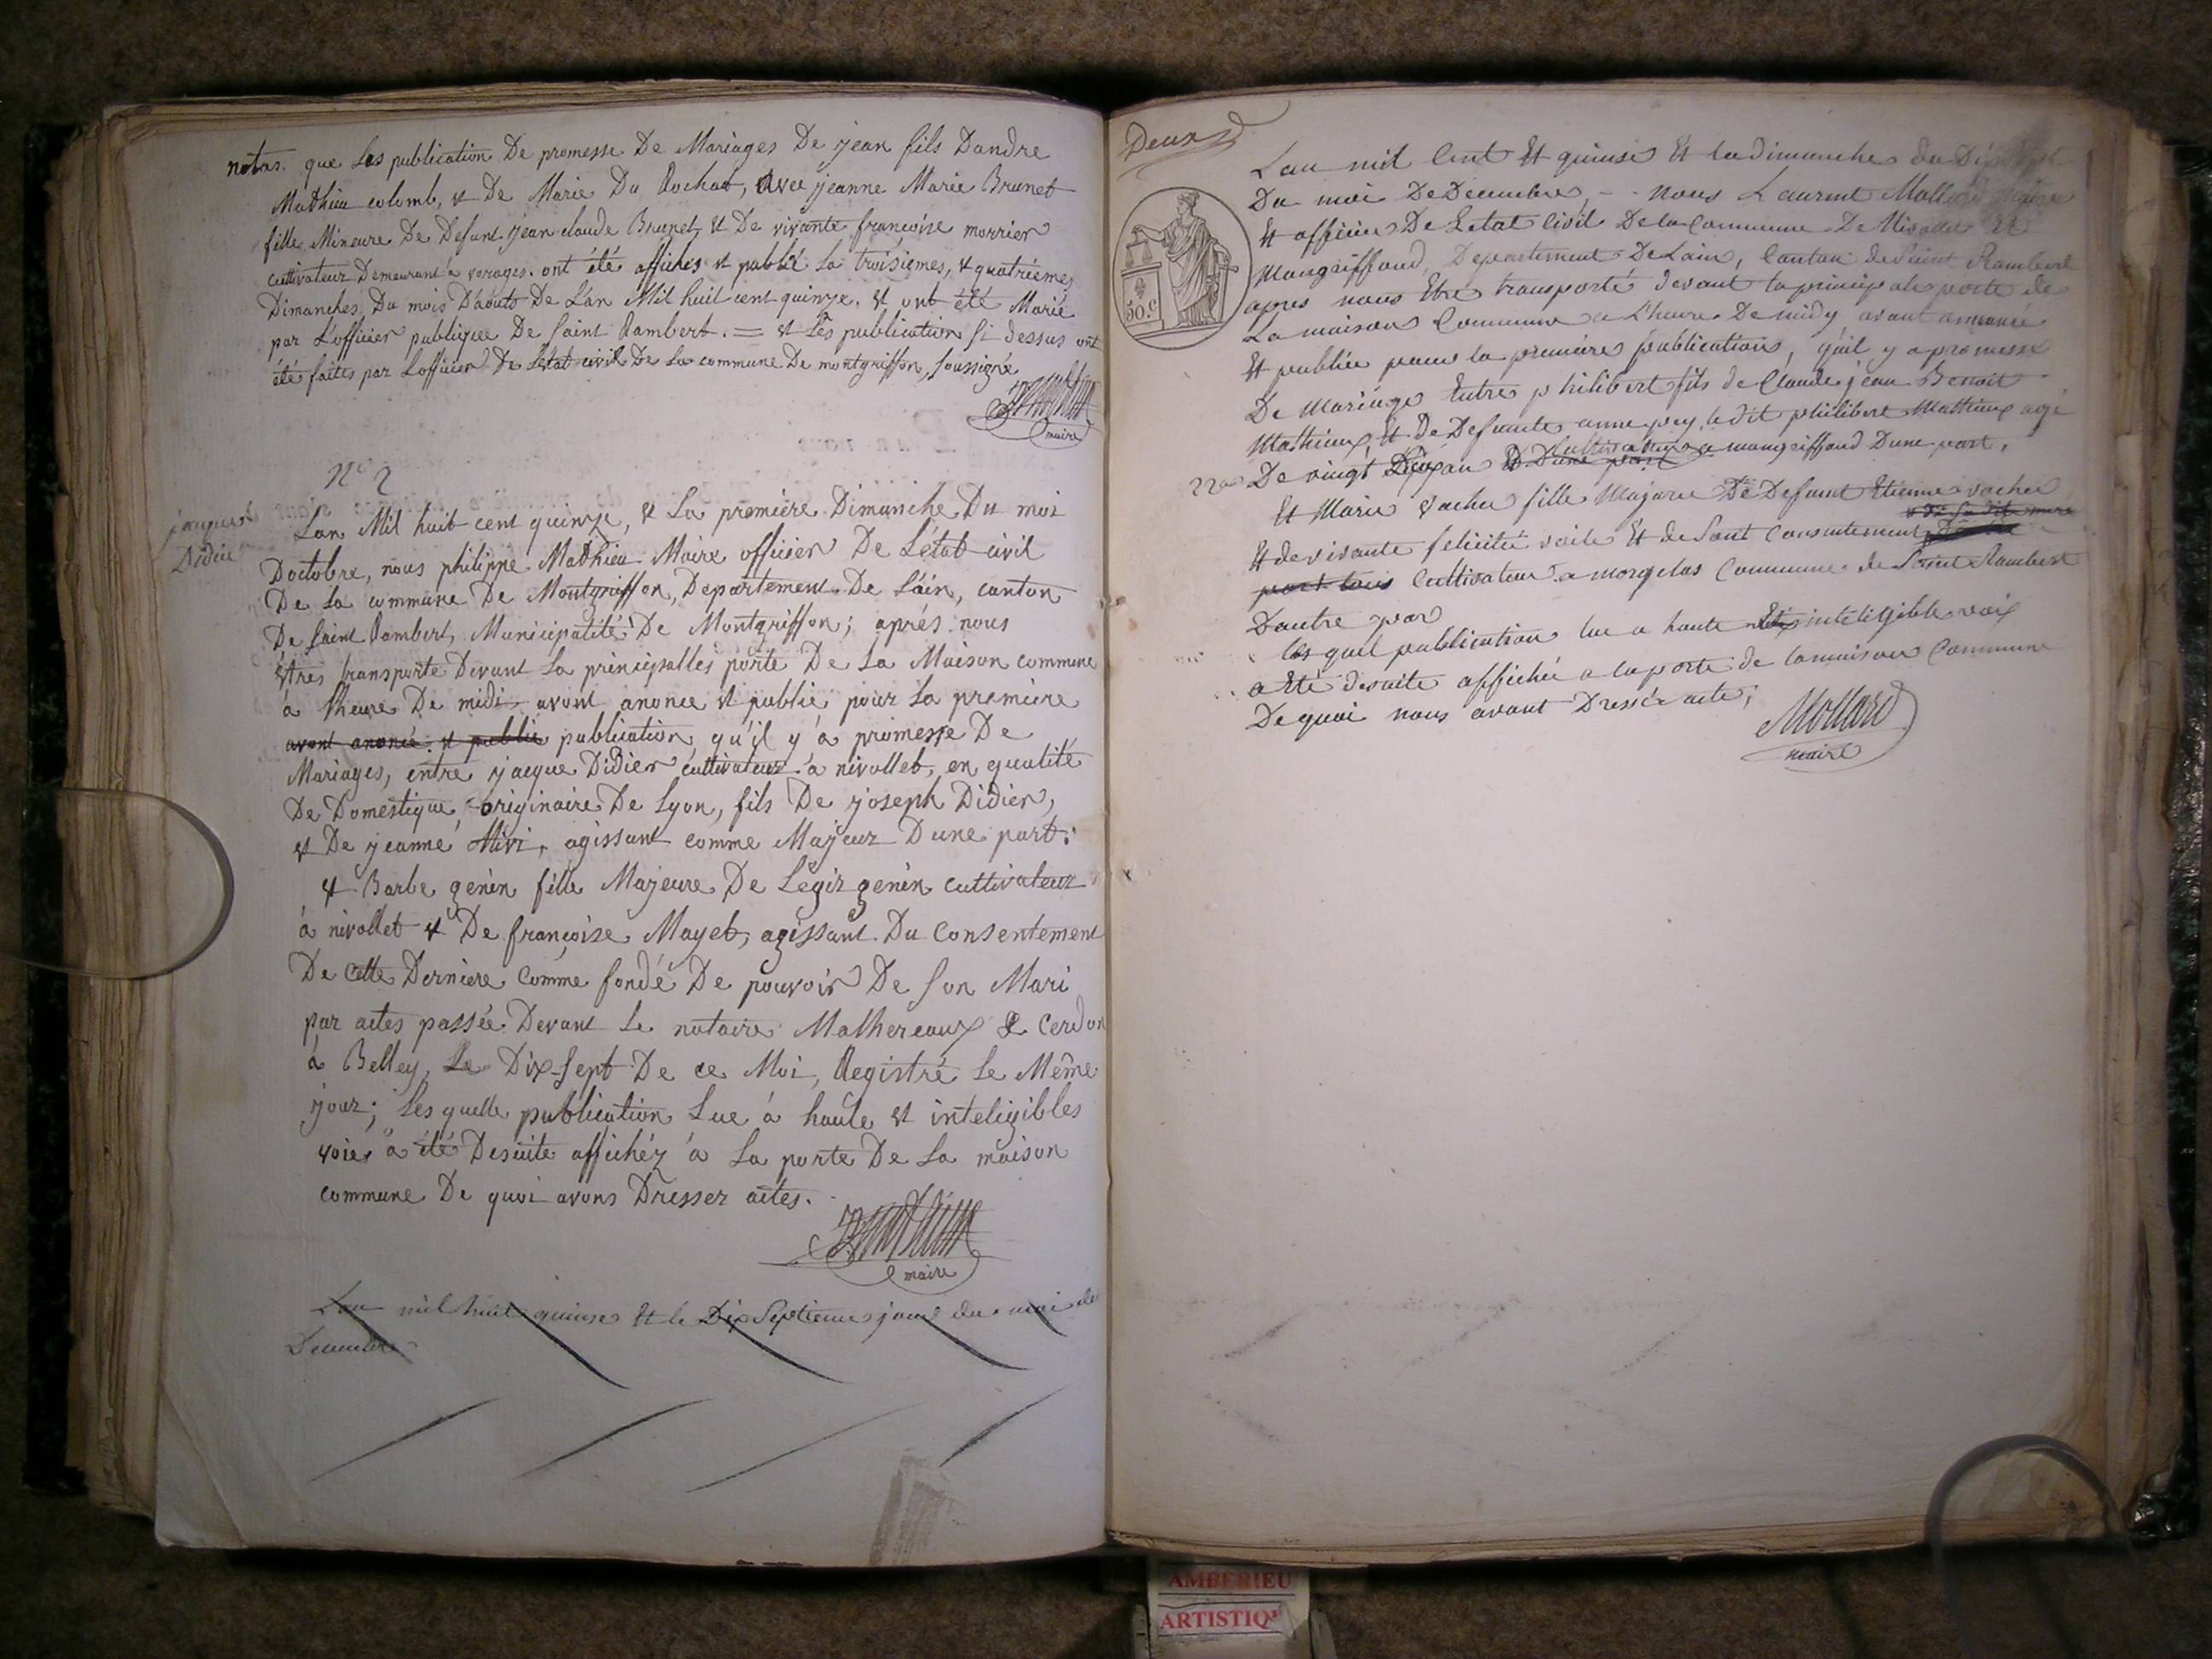 notas. que Les publication De promesse De Mariages De jean fils Dandre
Mathieu colomb, et De Marie Du Rochat, avec jeanne Marie Brunet
fille Mineure De Defunt jean claude Brunet, et De vivante françoise morrier
cultivateur Demeurant à vorages. ont été affichés et publié La troisiemes, et quatriemes
Dimanches Du mois D'aouts De L'an Mil huit cent quinze. et ont été Marié
par L'officier publique De Saint Rambert. = et Les publication Si dessus ont
été faites par Lofficier De Létat civil De La commune De montgriffon, Soussigné
maire
N° 2
jacques
Didier
Lan Mil huit cent quinze, et La premiere Dimanche Du moi
Doctobre, nous philippe Mathieu Maire officier De Létat civil
De La commune De Montgriffon, Departement De L'ain, canton
De Saint Rambert, Municipalité De Montgriffon; aprés nous
êtres transporte Devant La principalles porte De La Maison commune
à lheure De midi avont anonce et publie pour La premiere
avont anoncé et publie publication, qu'il y à promesse De
Mariages, entre jacque Didier cultivateur à nivollet, en qualité
De Domestique, originaire De Lyon, fils De joseph Didier,
et De jeanne Mivi, agissant comme Majeur Dune part:
et Barbe genin fille Majeure De Legir genin cultivateur
à nivollet et De françoise Mayet, agissant Du Consentement
De cette Derniere Comme fondé De pouvoir De Son Mari
par actes passée Devant Le notaire Malhereaux Cerdon
à Belley, Le Dix-Sept De ce Moi, Registré Le Même
jour; Les quelle publication Lue à haute et inteligibles
voie, à été Desuite affichéz à La porte De La maison
commune De quoi avons Dresser actes.
maire
Lan mil huit quinse Et le Dix Septieme jour du moi de
Decembre
Deux
50.c
Lan mil Cent Et quinse Et la dimanche du Dix Sept
Du moi De Decembre, - - nous Laurent Mollard maire
Et officier De Letat Civil De la Commune De Nivollet Et
Mongriffond, Departement De Lain, Canton de Saint Rambert
apres nous Etre transporté devant la principale porte de
La maison Commune a L'heure De midy avant annonce
Et publiée pour la premiere publication, qu'il y a promesse
De Mariage Entre philibert fils de Claude jean Benoit
Mathieux Et De Defunte anne pey, le dit philibert Mathieux agé
22 De vingt Deux an Dune part Cultivateur a mongriffond Dune part,
Et Marie Vacher fille Majeure De Defunt Etienne vacher
Et de vivante felicité voile Et de Sont Consentement et de sa dite mere
Cultivateur a morgelas Commune de Saint Rambert
Dautre par
les quel publication lue a haute Et inteligible voix
a Eté desuite affichée a la porte de la maison Commune
De quoi nous avant Dressée acte;
Mollard
maire
AMBERIEU
ARTISTIQ